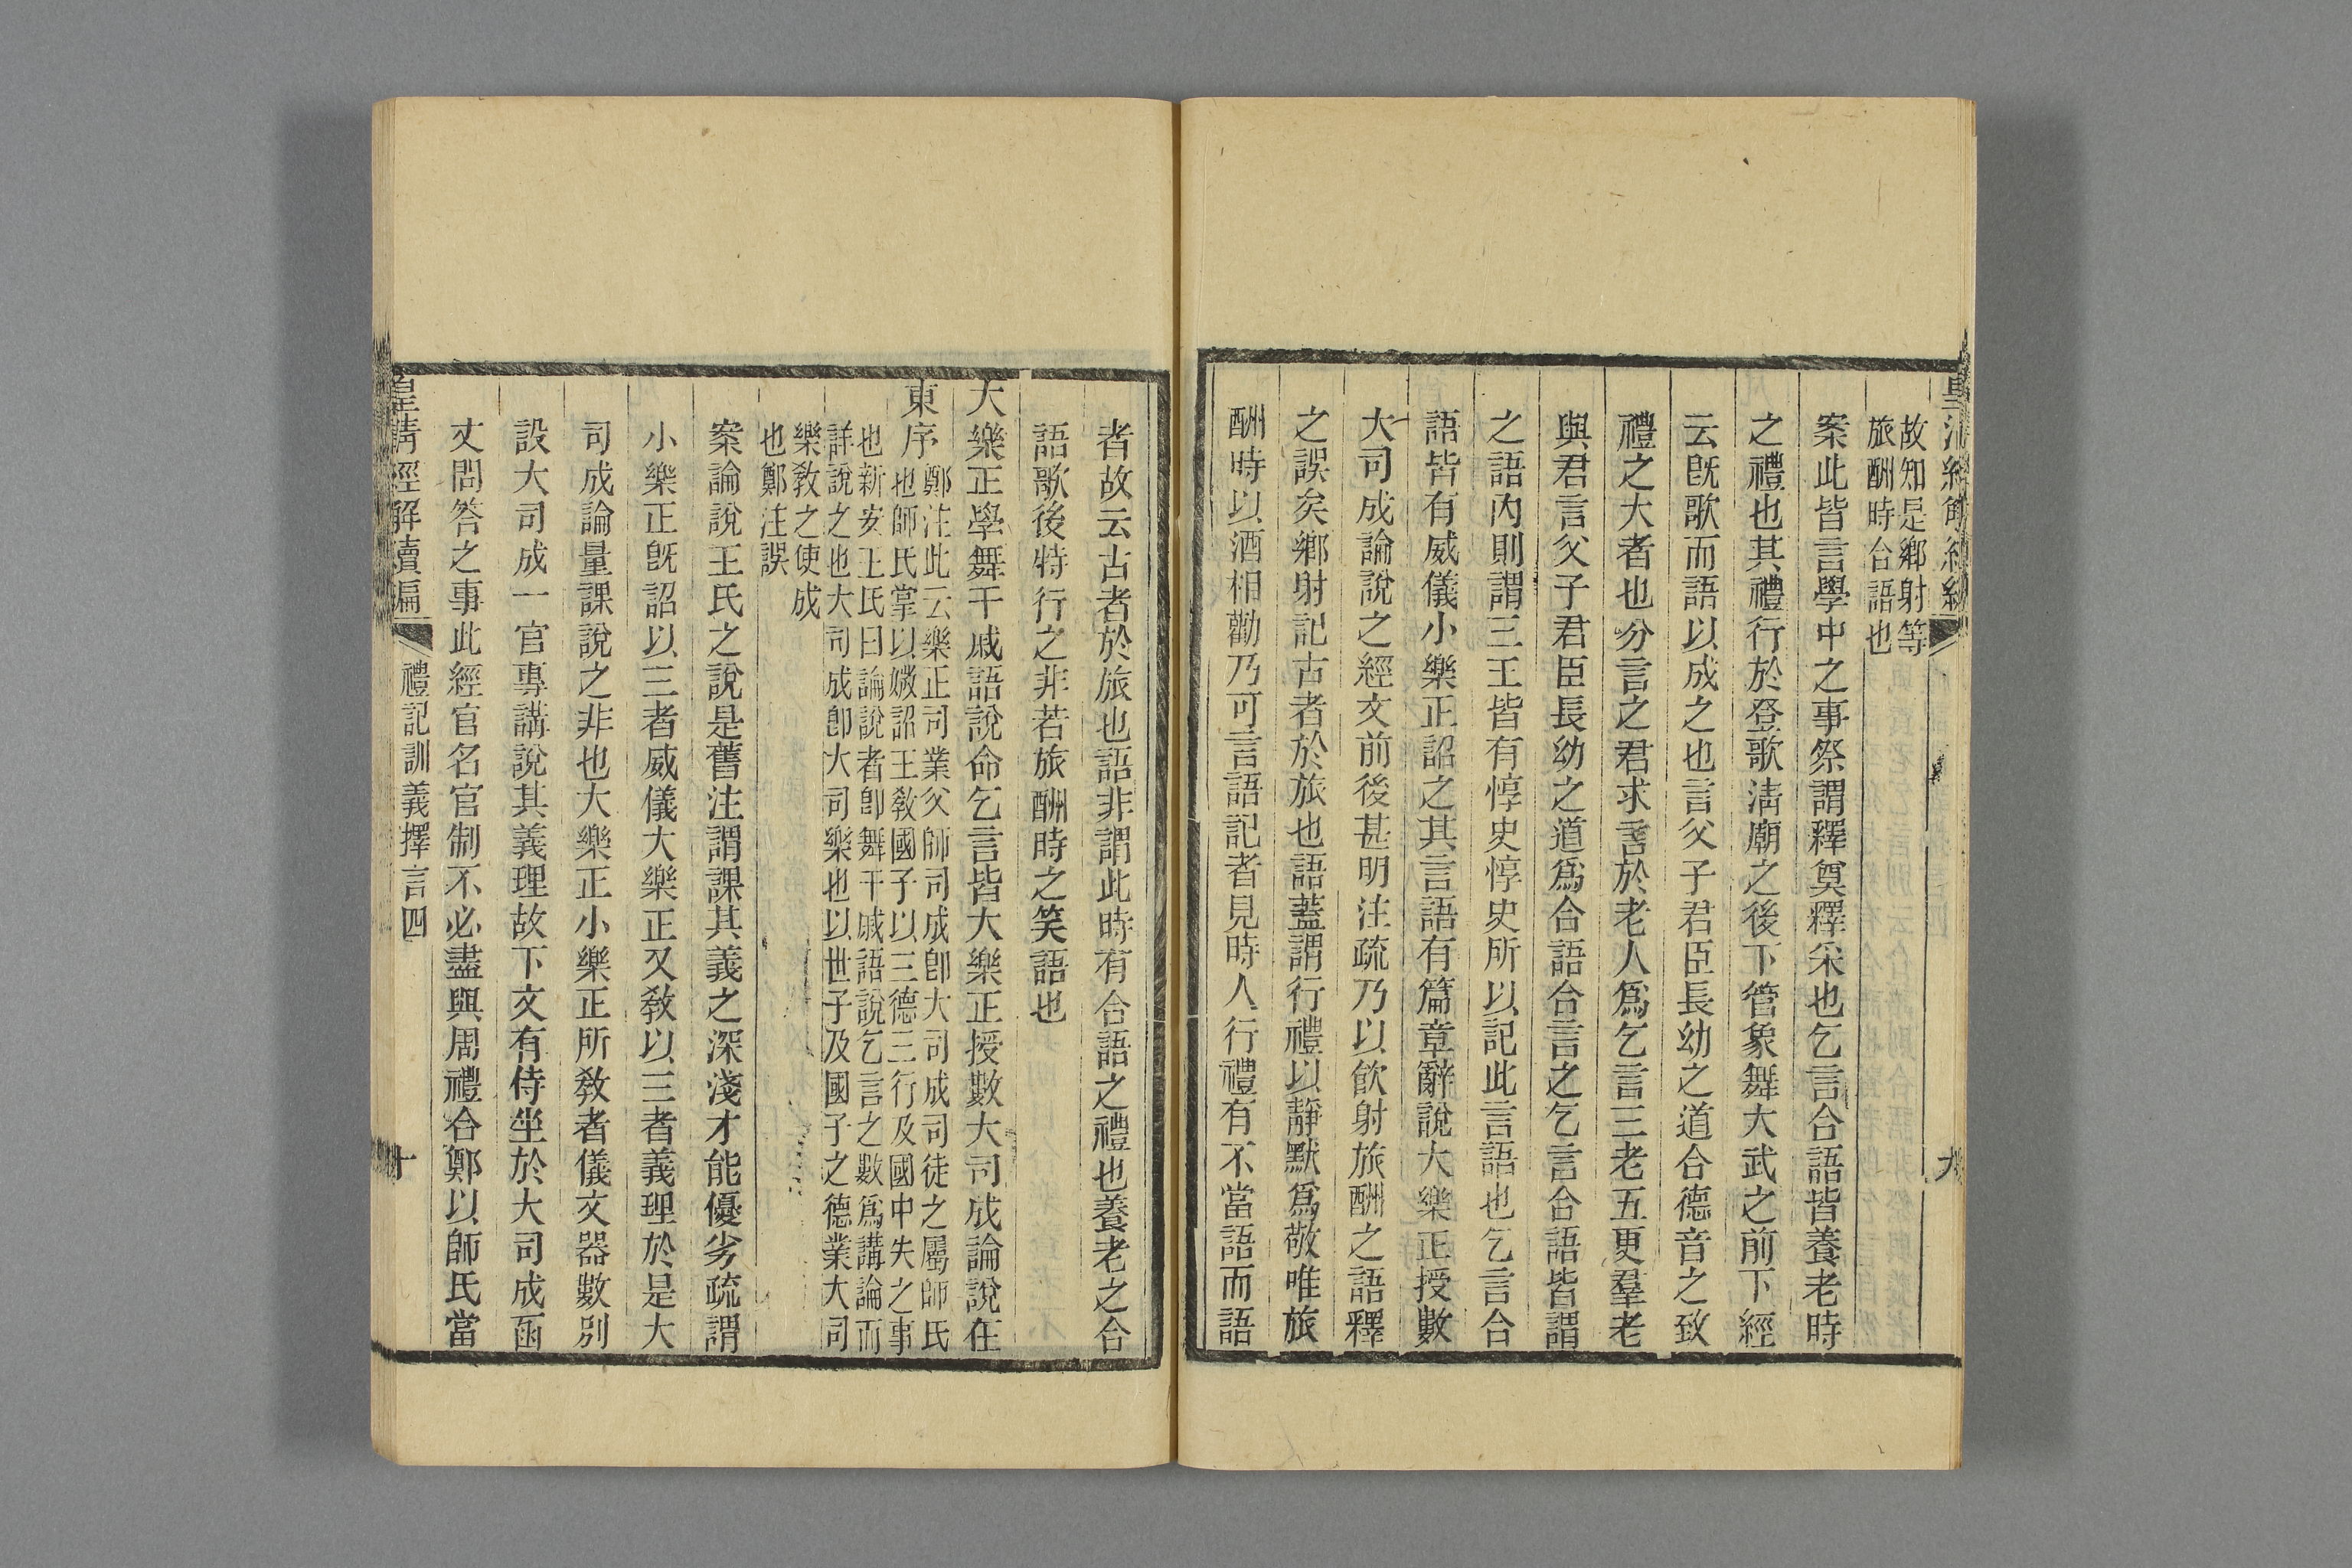 故知是鄉射等
旅酬時合語也
案此皆言學中之事祭謂釋奠釋采也乞言合語皆養老時
之禮也其禮行於登歌淸廟之後下管象舞大武之前下經
云旣歌而語以成之也言父子君臣長幼之道合德音之致
禮之大者也分言之君求言於老人爲乞言三老五更羣老
與君言父子君臣長幼之道爲合語合言之乞言合語皆謂
之語內則謂三王皆有惇史惇史所以記此言語也乞言合
語皆有威儀小樂正詔之其言語有篇章辭說大樂正授數
大司成論說之經文前後甚明注疏乃以飮射旅酬之語釋
之誤矣鄉射記古者於旅也語蓋謂行禮以靜默爲敬唯旅
酬時以酒相勸乃可言語記者見時人行禮有不當語而語
九
者故云古者於旅也語非謂此時有合語之禮也養老之合
語歌後特行之非若旅酬時之笑語也
大樂正學舞干戚語說命乞言皆大樂正授數大司成論說在
東序
鄭注此云樂正司業父師司成卽大司成司徒之屬師氏
也師氏掌以媺詔王敎國子以三德三行及國中失之事
也新安王氏曰論說者卽舞干戚語說乞言之數爲講論而
詳說之也大司成卽大司樂也以世子及國子之德業大司
樂敎之使成
也鄭注誤
案論說王氏之說是舊注謂課其義之深淺才能優劣疏謂
小樂正旣詔以三者威儀大樂正又敎以三者義理於是大
司成論量課說之非也大樂正小樂正所敎者儀文器數別
設大司成一官專講說其義理故下文有侍坐於大司成函
丈問答之事此經官名官制不必盡與周禮合鄭以師氏當
皇淸經解續編
禮記訓義擇言四
十